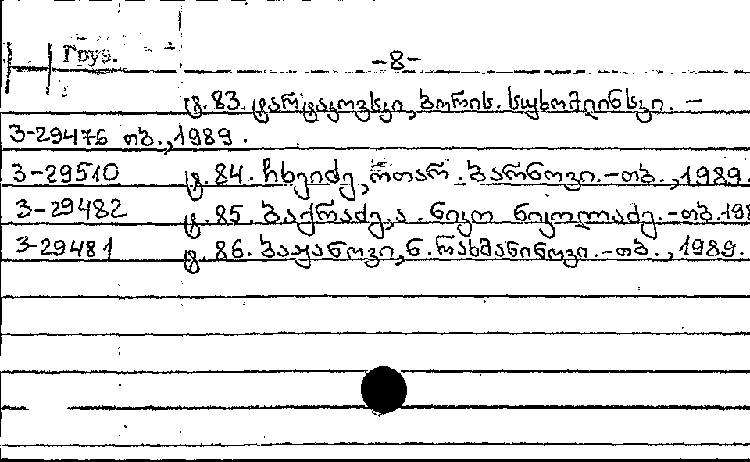 Груз.
-8-
ტ. 83. ტარტაკოვსკი, ბორის. სუხომლინსკი. –
3-29476 თბ., 1989.
3-29510 ტ. 84. ჩხეიძე, როთარ. ბარნოვი. – თბ., 1989.
3-29482 ტ. 85. ბაქრაძე, ა. ნიკო ნიკოლაძე. – თბ. 198
3-29481 ტ. 86. ბაჟანოვი, ნ. რახმანინოვი. – თბ., 1989.